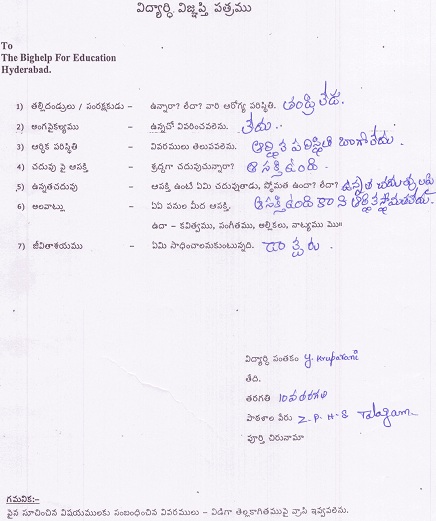 విద్యార్ధి విజ్ఞప్తి పత్రము
To
The Bighelp For Education
Hyderabad.
1) తల్లిదండ్రులు / సంరక్షకుడు – ఉన్నారా? లేదా? వారి ఆరోగ్య పరిస్థితి. తండ్రి లేడు.
2) అంగవైకల్యము – ఉన్నచో వివరించవలెను. లేదు.
3) ఆర్థిక పరిస్థితి – వివరములు తెలుపవలెను. ఆర్థిక పరిస్థితి బాగాలేదు.
4) చదువు పై ఆసక్తి – శ్రద్ధగా చదువుచున్నారా? ఆసక్తి ఉంది.
5) ఉన్నతచదువు – ఆసక్తి ఉంటే ఏమి చదువుతాడు, స్థోమత ఉందా? లేదా? ఉన్నత చదువులపై
6) అలవాట్లు – ఏఏ పనుల మీద ఆసక్తి. ఆసక్తి ఉంది కాని ఆర్థిక స్థోమతలేదు.
ఉదా – కవిత్వము, సంగీతము, అల్లికలు, నాట్యము మొ॥
7) జీవితాశయము – ఏమి సాధించాలనుకుంటున్నది. డాక్టరు.
విద్యార్ధి సంతకం Y. Kruparani
తేది.
తరగతి 10వ తరగతి
పాఠశాల పేరు Z.P.H.S Talagam
పూర్తి చిరునామా
గమనిక:-
పైన సూచించిన విషయములకు సంబంధించిన వివరములు – విడిగా తెల్లకాగితముపై వ్రాసి ఇవ్వవలెను.